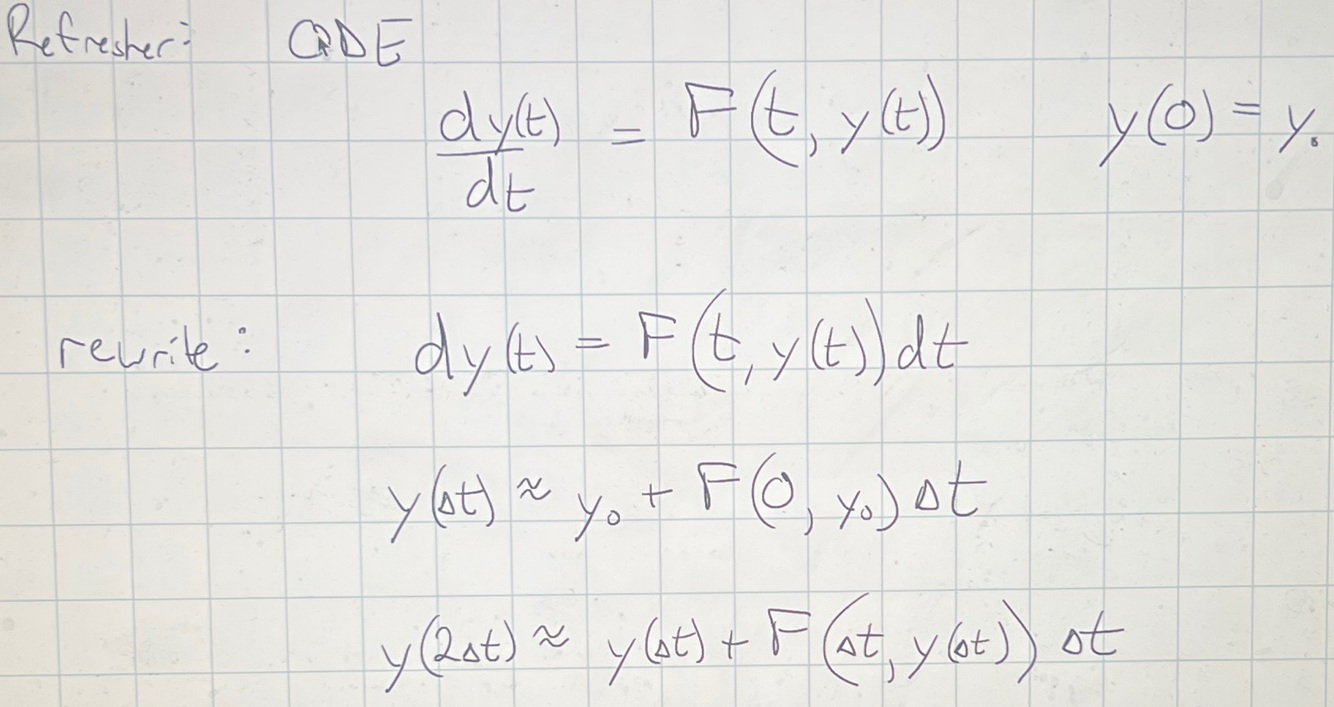 Refresher: ODE
dy(t)/dt = F(t, y(t)) y(0) = y₀
rewrite: dy(t) = F(t, y(t))dt
y(Δt) ≈ y₀ + F(0, y₀) Δt
y(2Δt) ≈ y(Δt) + F(Δt, y(Δt)) Δt